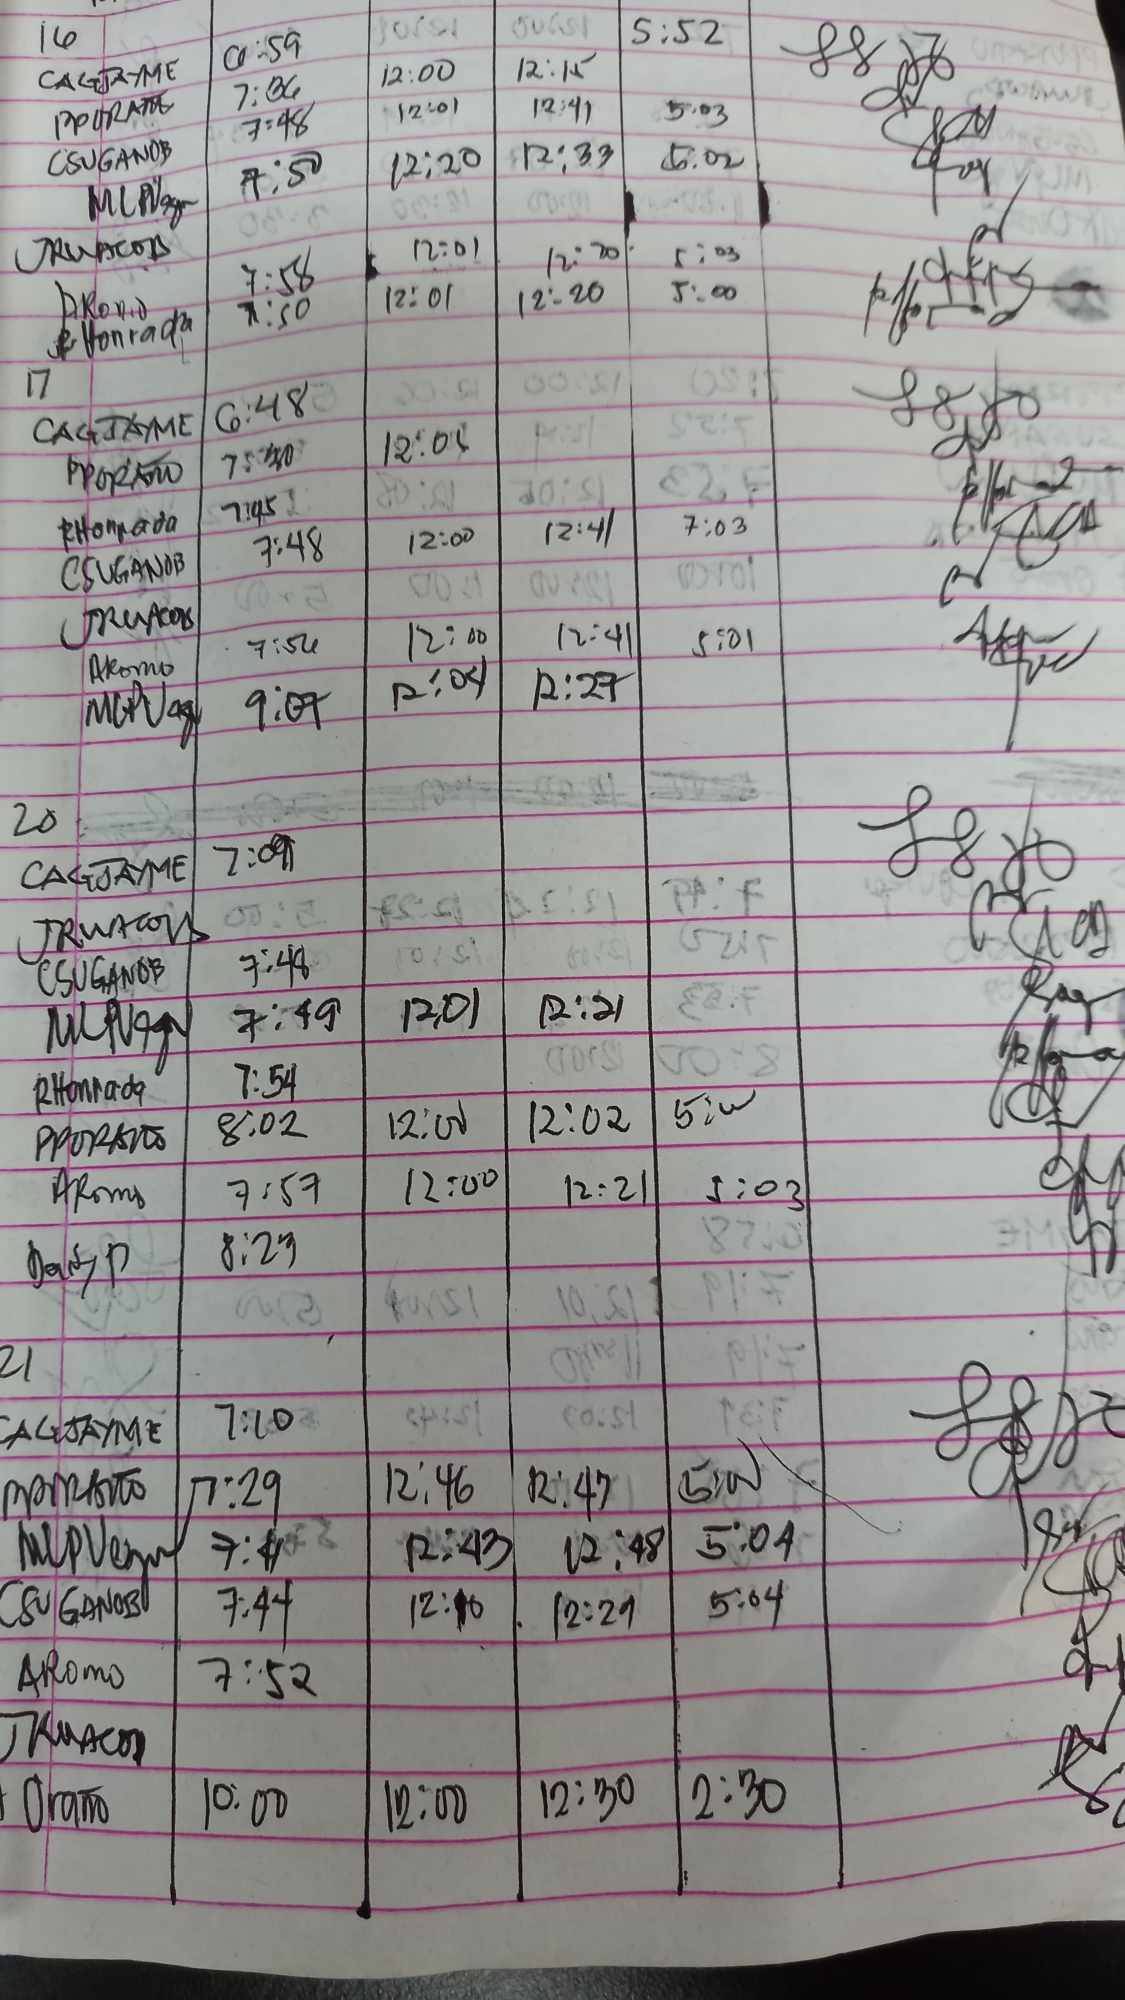 16
CAGJAYME 6:59 5:52
PPORATO 7:36 12:00 12:15
CSUGANOB 7:48 12:01 12:41 5:03
MLPVega 7:50 12:20 12:33 5:02
JRUACOB
ARomo 7:58 12:01 12:20 5:03
RHonrada 7:50 12:01 12:20 5:00
17
CAGJAYME 6:48
PPORATO 7:30 12:05
RHonrada 7:45
CSUGANOB 7:48 12:00 12:41 7:03
JRUACOB
ARomo 7:56 12:00 12:41 5:01
MLPVega 9:07 12:04 12:27
20
CAGJAYME 7:09
JRUACOB
CSUGANOB 7:48
MLPVega 7:49 12:01 12:21
RHonrada 7:54
PPORATO 8:02 12:00 12:02 5:00
ARomo 7:57 12:00 12:21 5:03
8:23
21
CAGJAYME 7:10
PPORATO 7:29 12:46 12:47 5:00
MLPVega 12:43 12:48 5:04
CSUGANOB 7:44 12:10 12:29 5:04
ARomo 7:52
JRUACOB
Oratto 10:00 12:00 12:30 2:30